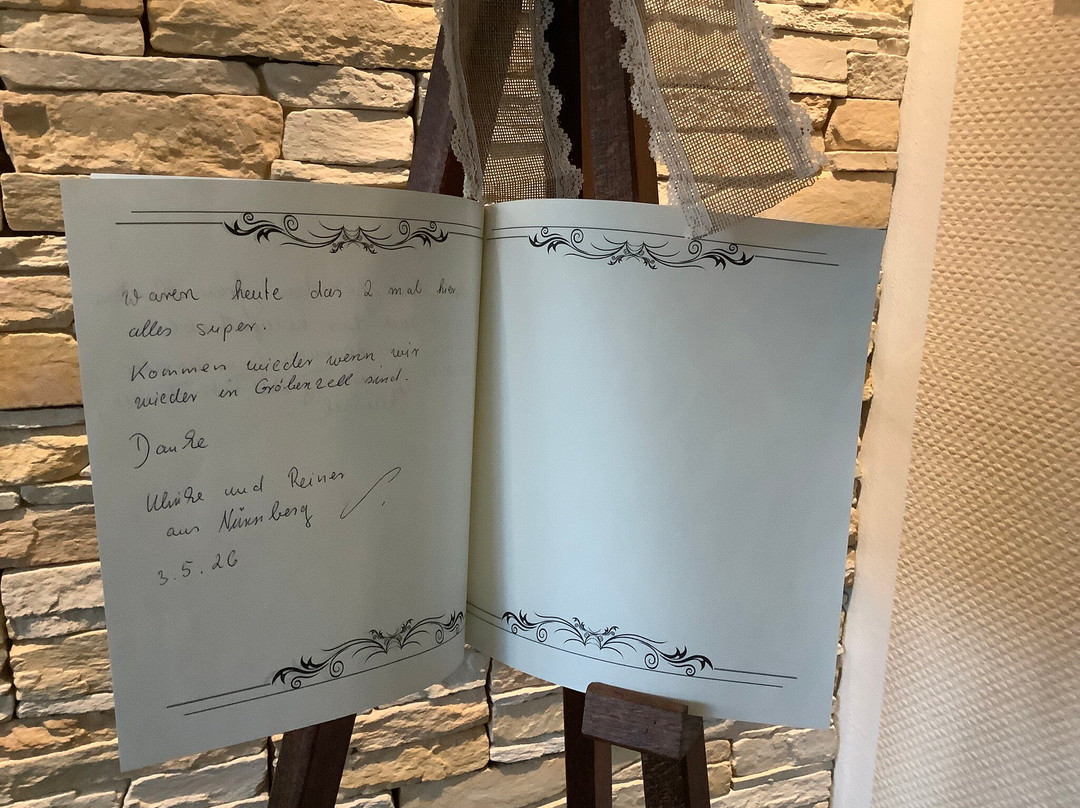 Waren heute das 2 mal hier
alles super.
Kommen wieder wenn wir
wieder in Gröbenzell sind.
Danke
Ulrike und Reiner
aus Nürnberg
3.5.26